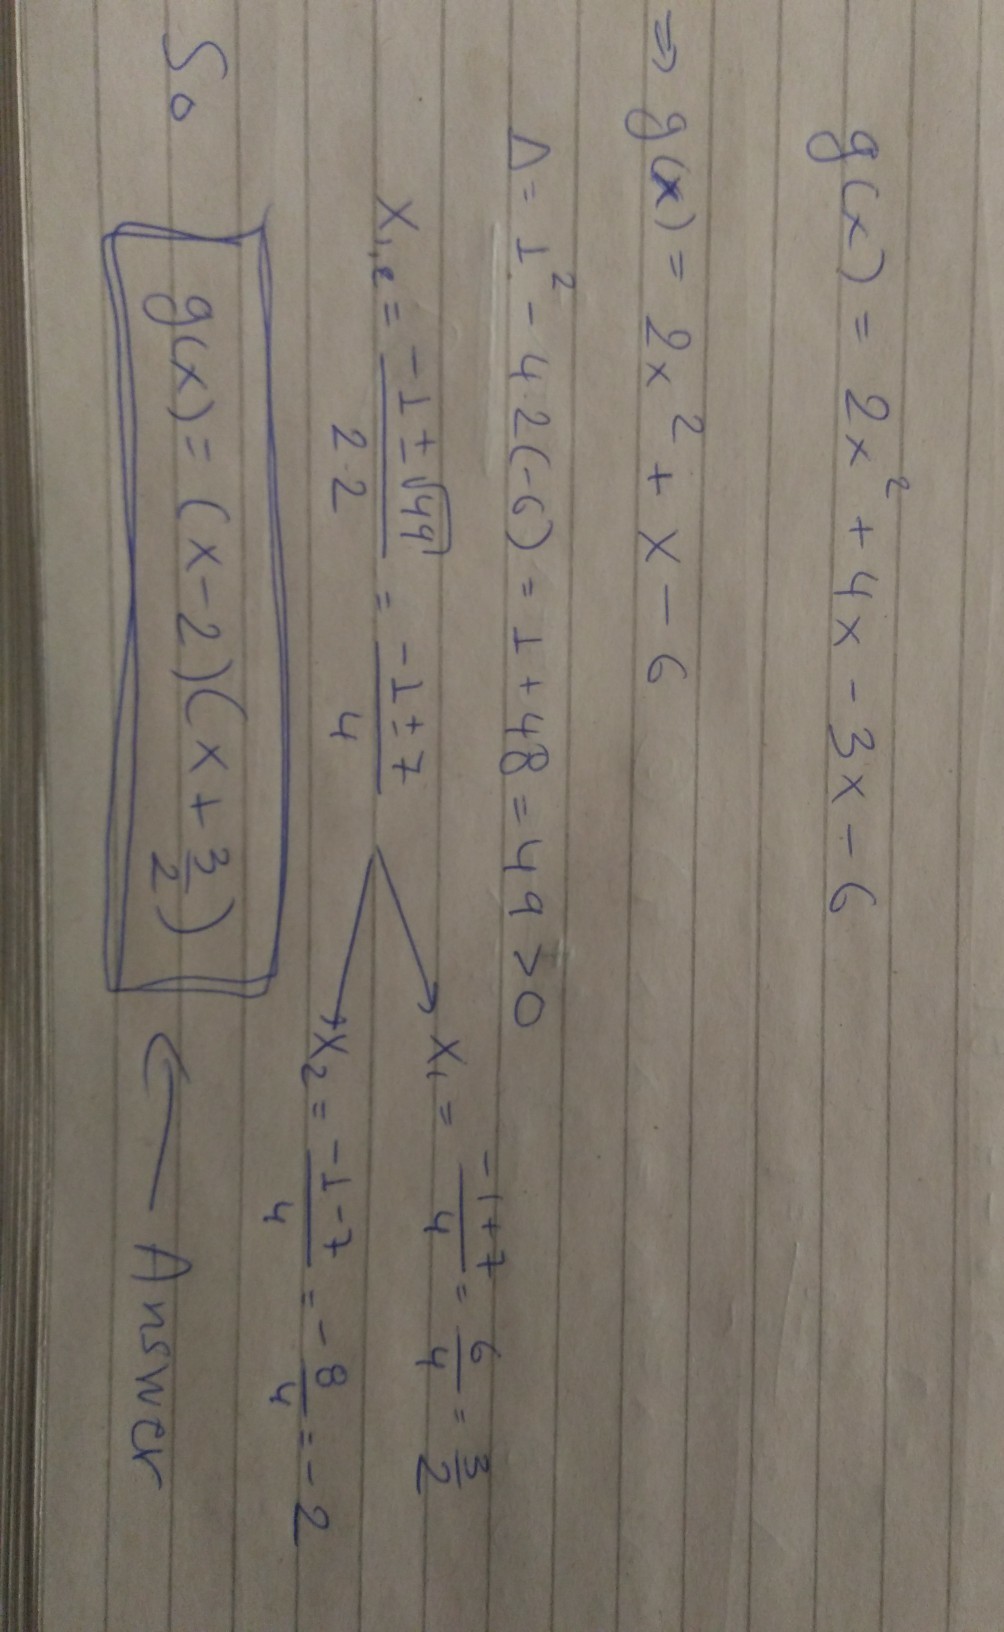 g(x) = 2x² + 4x - 3x - 6
⇒ g(x) = 2x² + x - 6
Δ = 1² - 4·2(-6) = 1 + 48 = 49 > 0
x₁,₂ = (-1 ± √49)/(2·2) = (-1 ± 7)/4
x₁ = (-1+7)/4 = 6/4 = 3/2
x₂ = (-1-7)/4 = -8/4 = -2
So g(x) = (x-2)(x + 3/2) ← Answer